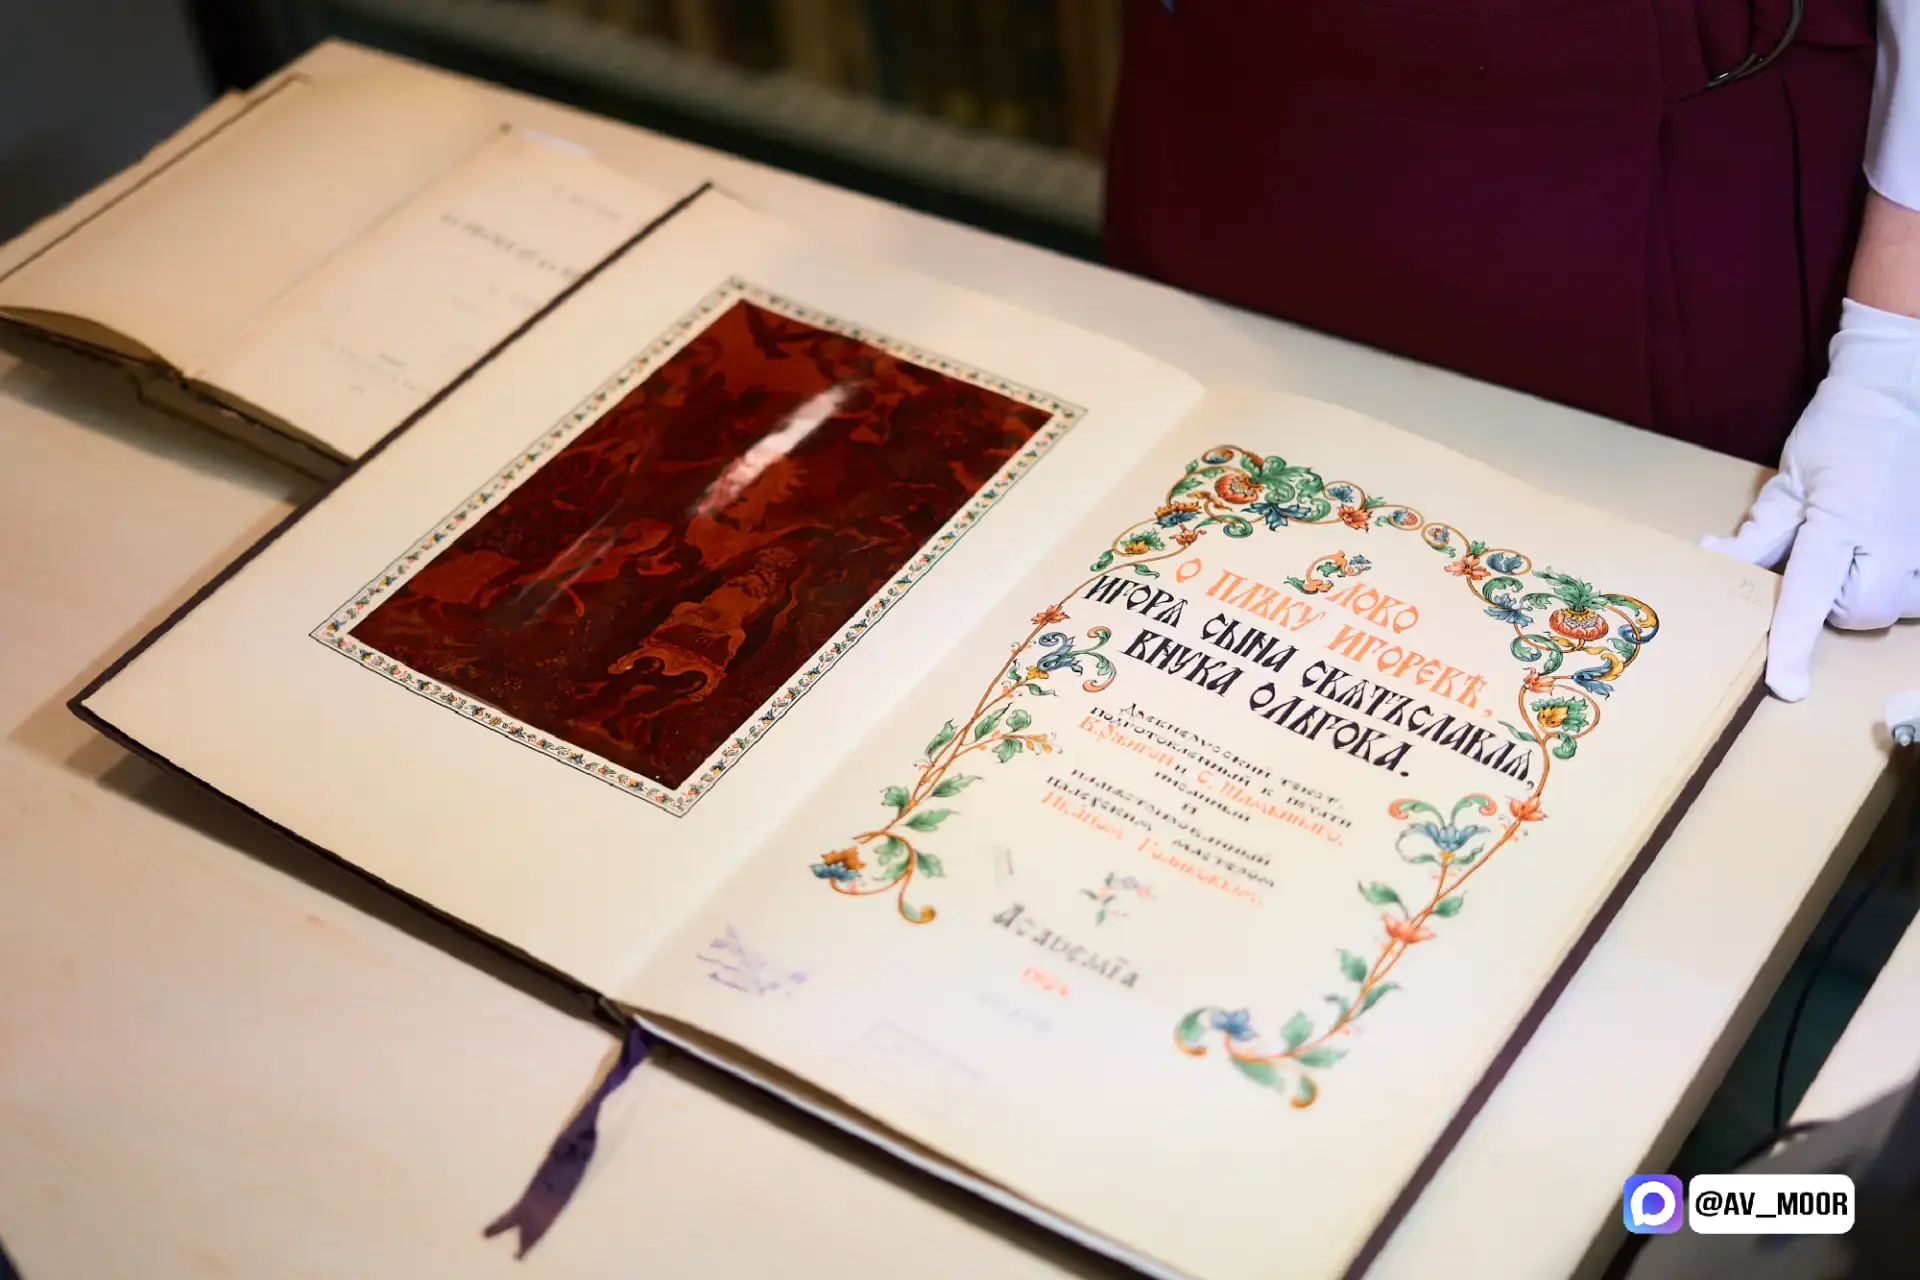 Слово
о плъку Игоревѣ,
Игорѧ сына Свѧтъславлѧ,
внука Ольгова.
Древнерусский текст,
подготовленный к печати
В. Ржигой и С. Шамбинаго,
писанный
и
иллюстрированный
палехским мастером
Иваном Голиковым.
Academia
1934
@AV_MOOR